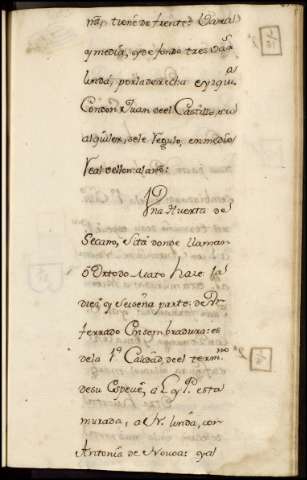 nas, tiene de frente 2 Varas
y media, y de fondo tres Vas
linda, por la derecha e yzqui.a
Con don Juan de el Castillo, su
alquiler, se le regulo, en medio
real de llon al año:
Una Huerta de
Secano, sita donde llaman
ô Orto do Mato haze la
diez y seisena parte de
ferrado Consembradura: es
de la 1.a Calidad, de el term.no
de su Especie, a L. y P. esta
murada, a N. linda, con
Antonia de Novoa: oya